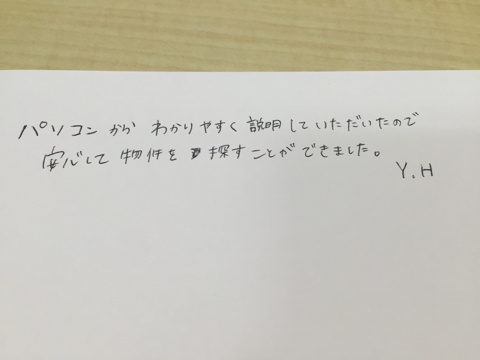 パソコンから わかりやすく説明していただいたので
安心して物件を探すことができました。
Y.H